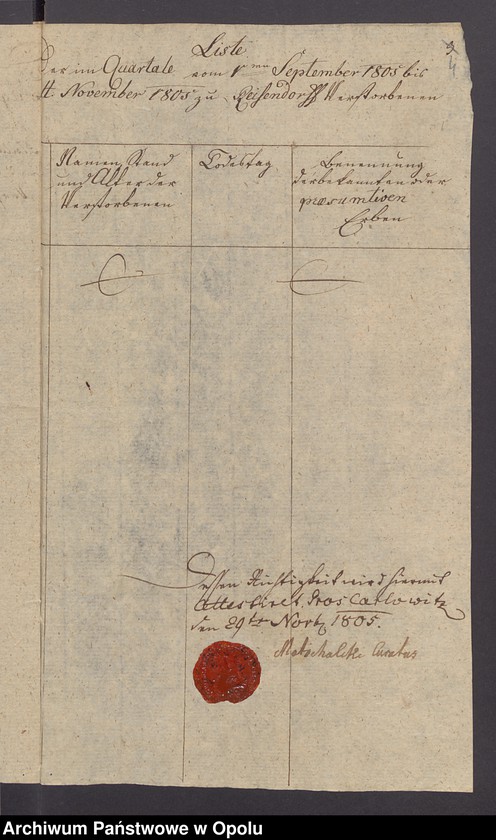 Liste
der im Quartale vom 1ten September 1805 bis
ult. November 1805 zu Reisendorff Verstorbenen
Namen, Stand
und Alter der
Verstorbenen
Todestag
Benennung
der bekannten oder
præsumtiven
Erben
Dessen Richtigkeit wird hiermit
attestiret. Gros Carlowitz
den 29ten Novbr 1805.
Curatus
Archiwum Państwowe w Opolu